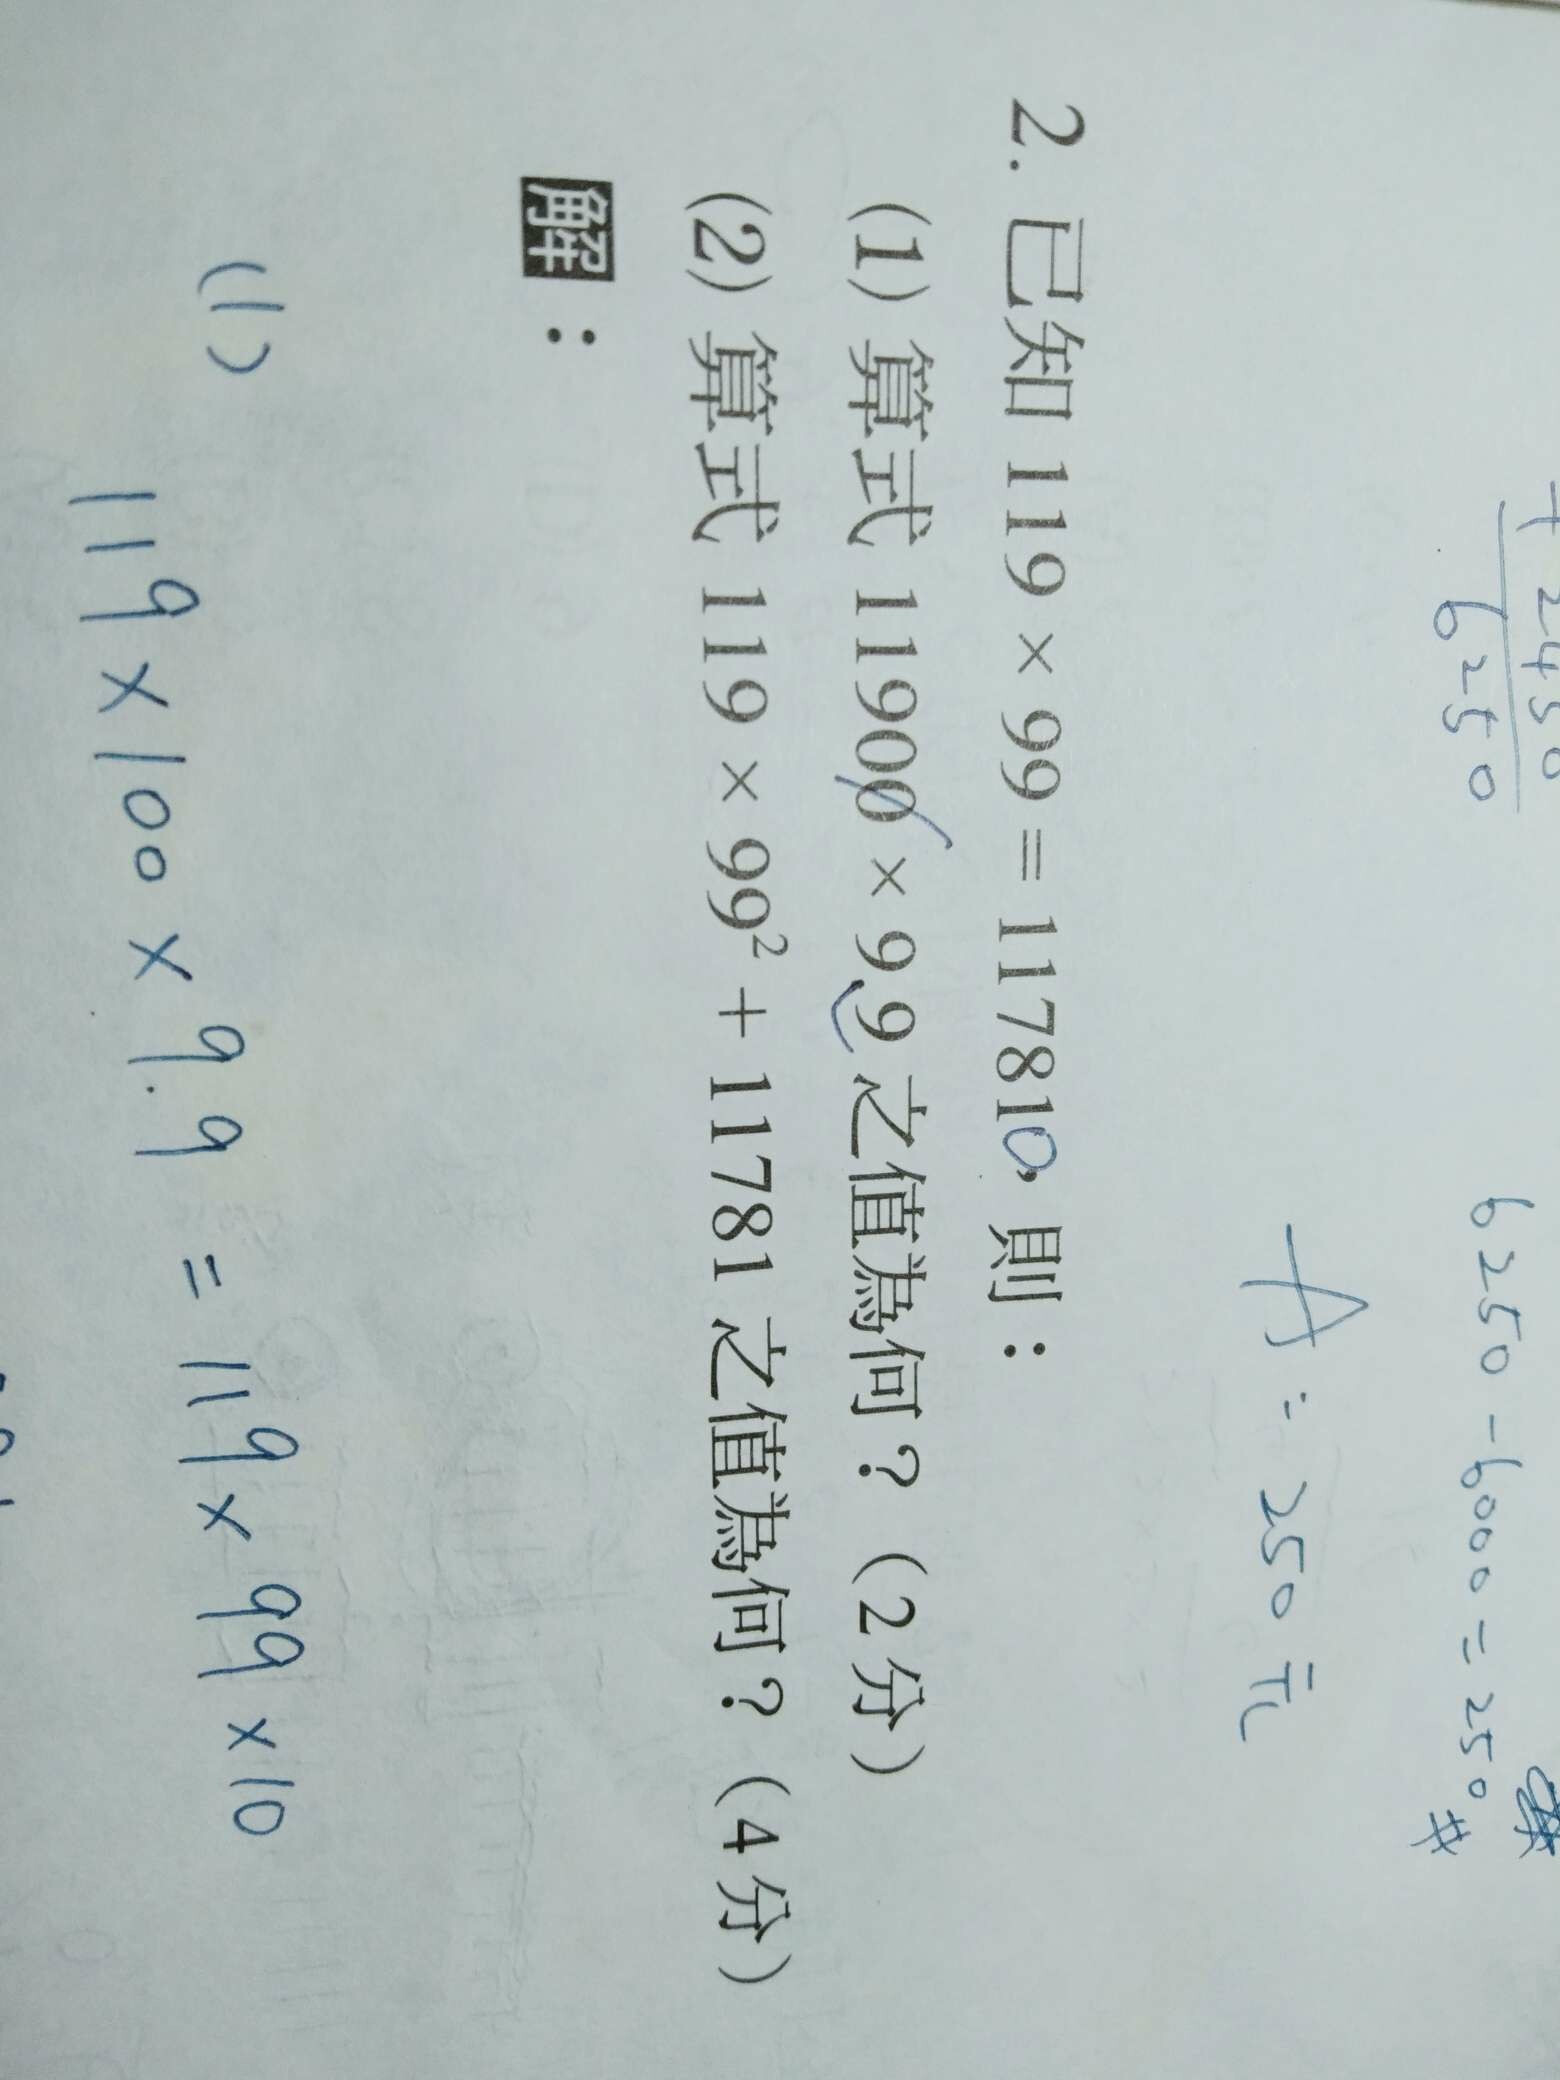 + 2450
6250
6250 - 6000 = 250 #
A = 250 元
2. 已知 119 × 99 = 117810，則：
(1) 算式 11900 × 9.9 之值為何？（2 分）
(2) 算式 119 × 99² + 11781 之值為何？（4 分）
解：
(1)
119 × 100 × 9.9 = 119 × 99 × 10